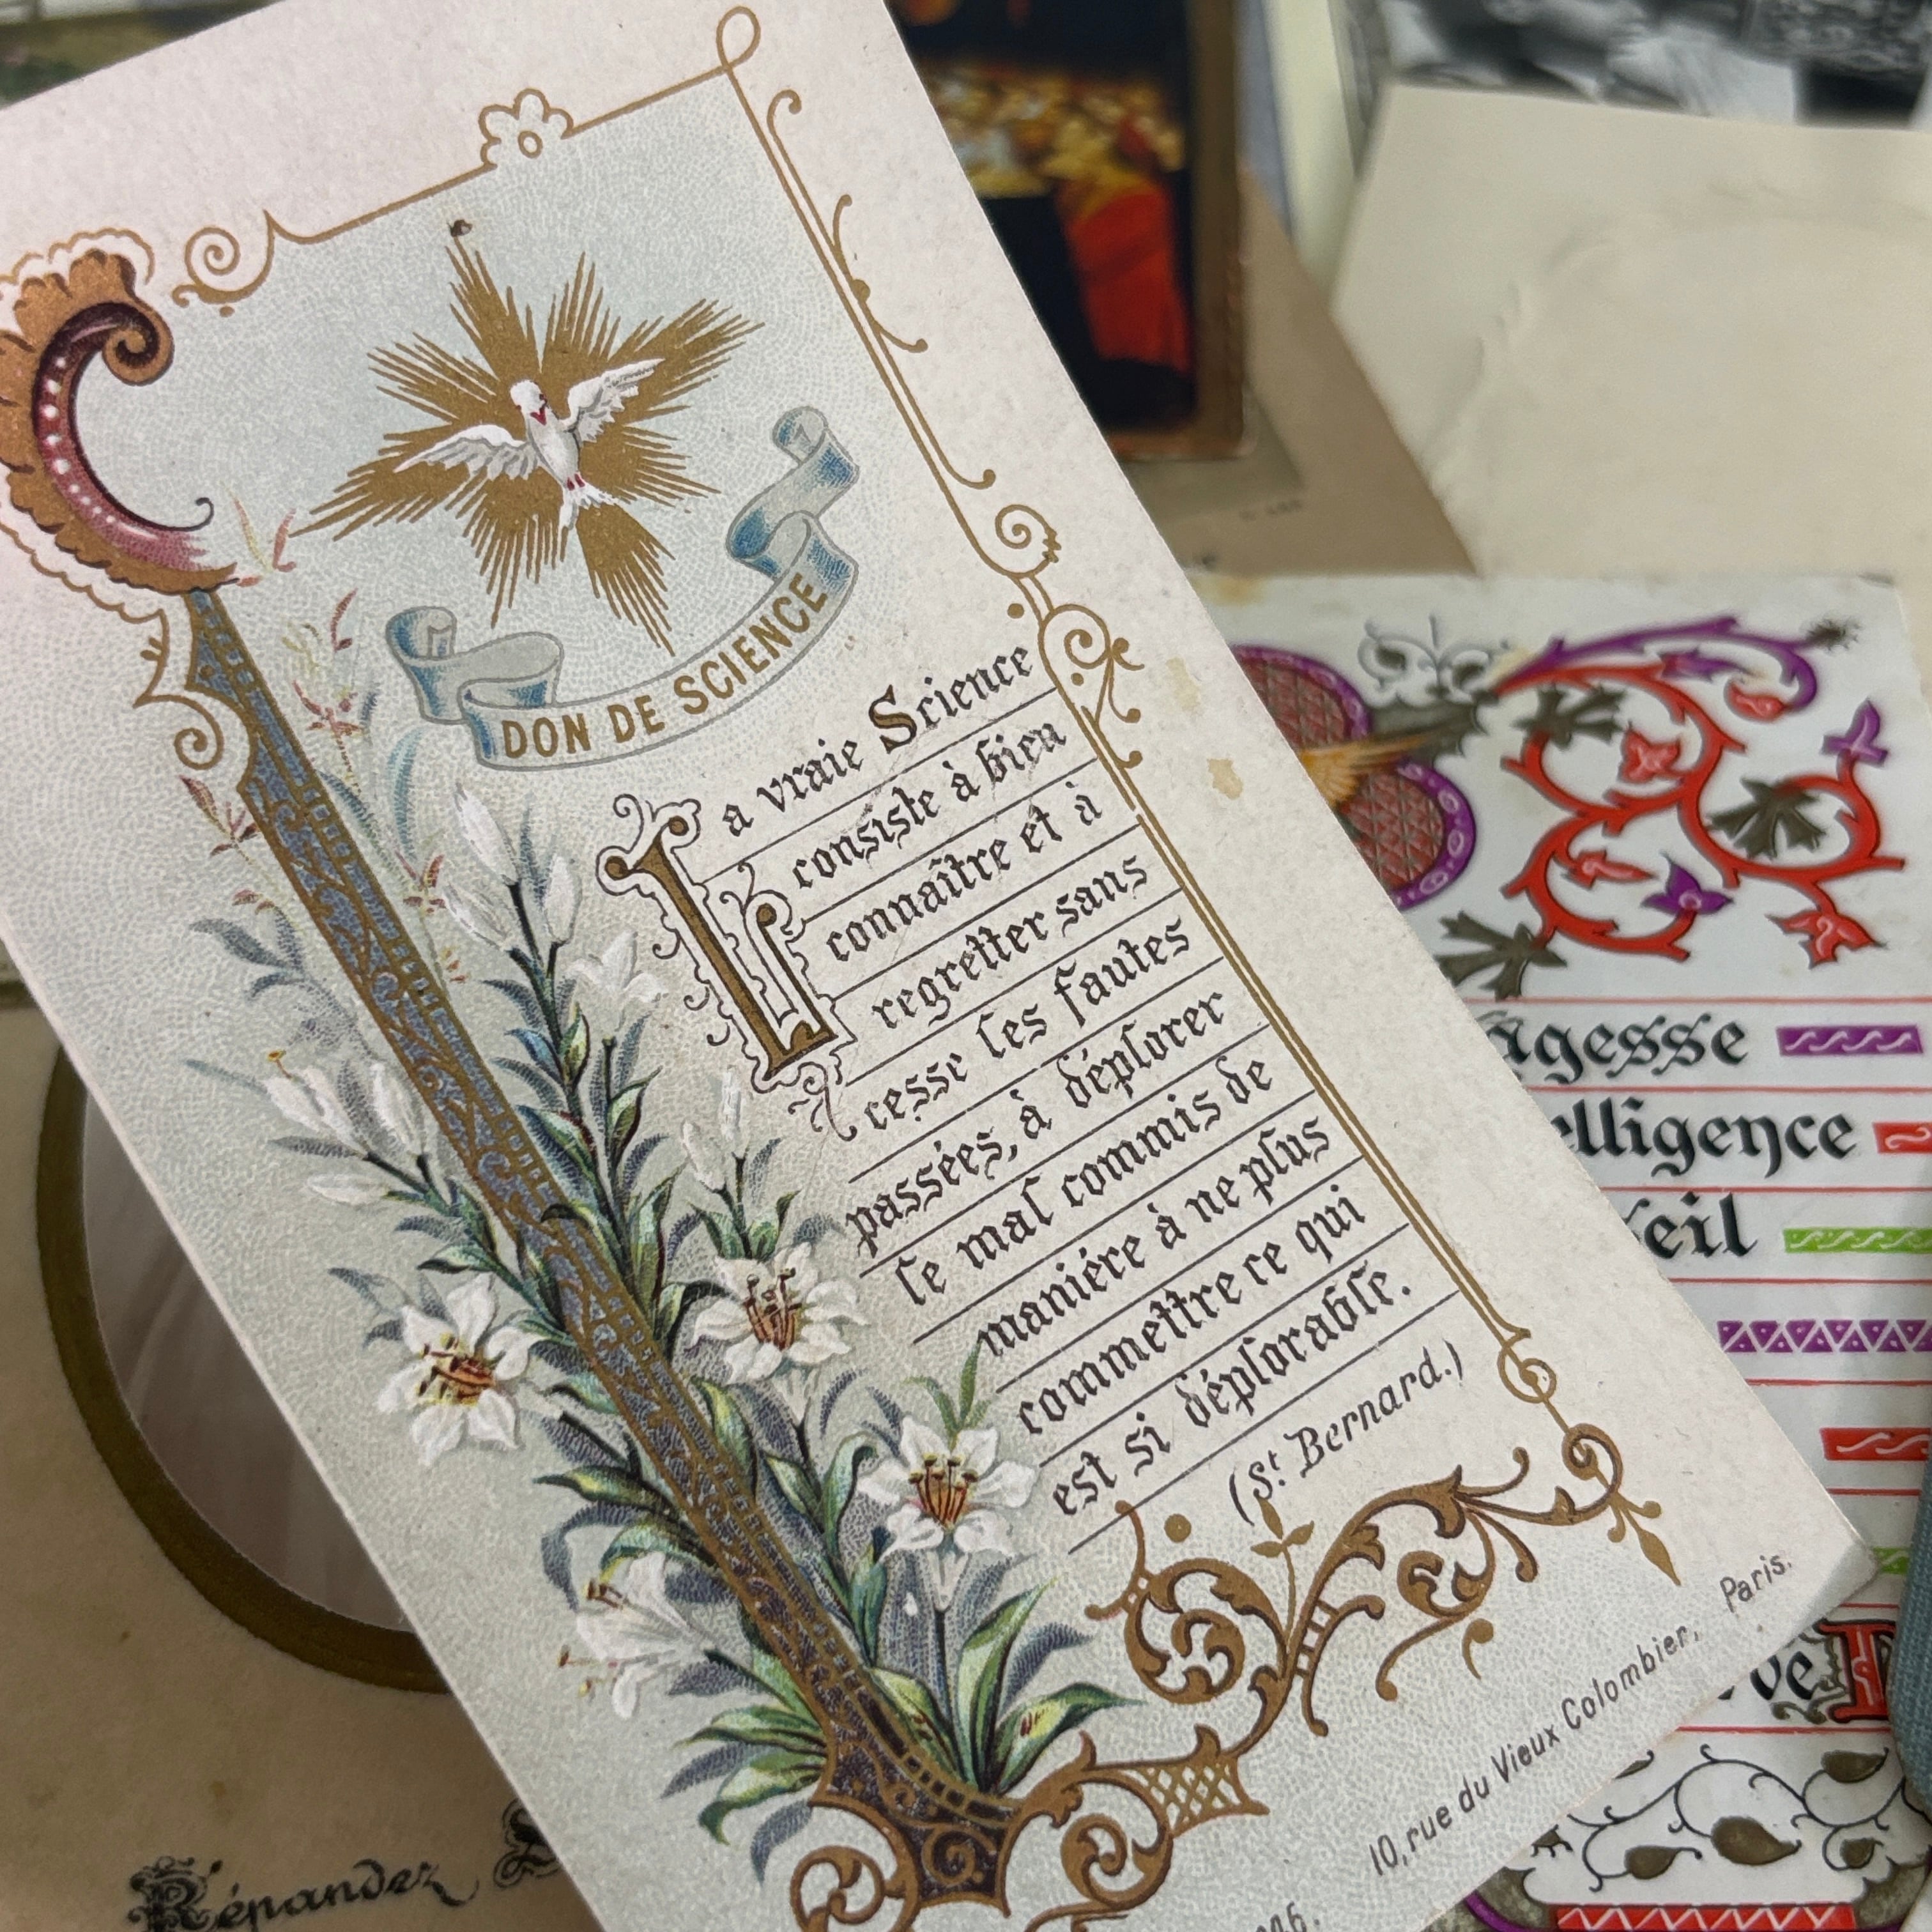 DON DE SCIENCE
La vraie Science
consiste à bien
connaître et à
regretter sans
cesse les fautes
passées, à déplorer
le mal commis de
maniére à ne plus
commettre ce qui
est si déplorable.
(St. Bernard.)
10, rue du Vieux Colombier, Paris.
Répandez